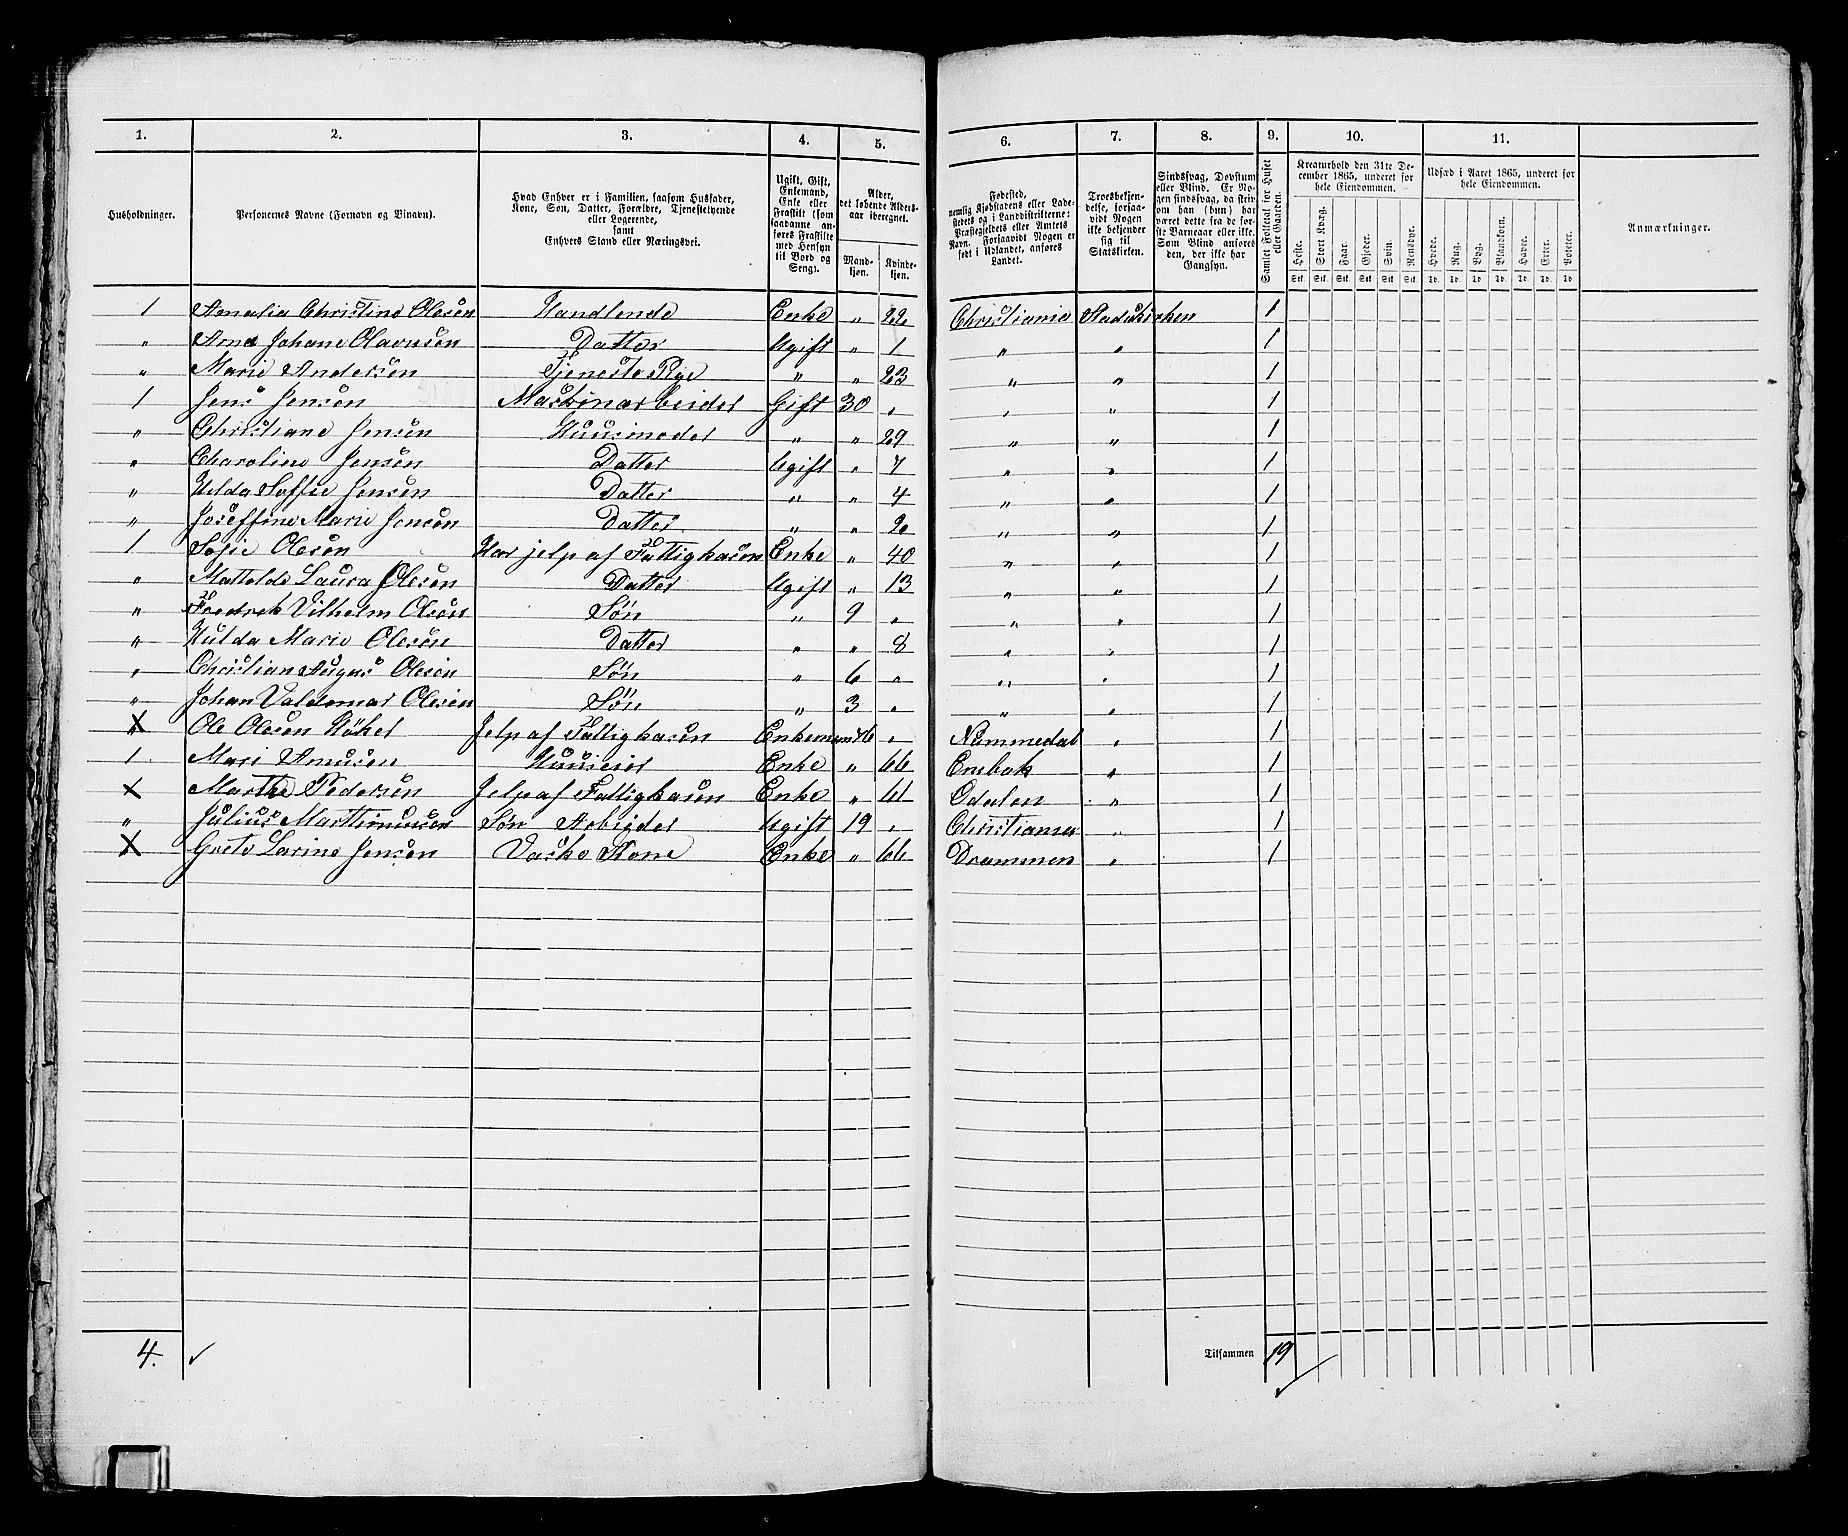 1. 2. 3. 4. 5. 6. 7. 8. 9. 10. 11.
Husholdninger.
Personernes Navne (Fornavn og Binavn).
Hvad Enhver er i Familien, saasom Husfader, Kone, Søn, Datter, Forældre, Tjenestetyende eller Logerende, samt Enhvers Stand eller Næringsvei.
Ugift, Gift, Enkemand, Enke eller Fraskilt (som saadanne anføres Fraskilte med Hensyn til Bord og Seng).
Alder, det løbende Aldersaar iberegnet.
Mandkjøn. Kvindekjøn.
Fødested, nemlig Kjøbstadens eller Ladestedets og i Landdistrikterne: Præstegjeldets eller Amtets Navn. Forsaavidt Nogen er født i Udlandet, anføres Landet.
Troesbekjendelse, forsaavidt Nogen ikke bekjender sig til Statskirken.
Sindssvag, Døvstum eller Blind. Er Nogen sindssvag, da skrives om han (hun) har været dette fra de første Barneaar eller ikke. Som Blind anføres den, der ikke har Gangsyn.
Samlet Folketal for Huset eller Gaarden.
Kreaturhold den 31te December 1865, underet for hele Eiendommen.
Heste. Stort Kvæg. Faar. Gjeder. Svin. Rensdyr.
Stk. Stk. Stk. Stk. Stk. Stk.
Udsæd i Aaret 1865, underet for hele Eiendommen.
Hvede. Rug. Byg. Blandkorn. Havre. Erter. Poteter.
Td. Td. Td. Td. Td. Td. Td.
Anmærkninger.
1 Amalia Christine Olesen Handlende Enke „ 22 Christiania Stadskirken 1
„ Anna Johane Olavusen Datter Ugift „ 1 „ „ 1
„ Marie Andersen Tjeneste Pige „ „ 23 „ „ 1
1 Jens Jensen Maskinarbeider Gift 30 „ „ „ 1
„ Christiane Jensen Huusmoder „ „ 29 „ „ 1
„ Charoline Jensen Datter Ugift „ 7 „ „ 1
„ Helda Soffie Jensen Datter „ „ 4 „ „ 1
„ Joseffine Marie Jensen Datter „ „ 2 „ „ 1
1 Sofie Olesen Har jelp af Fattigkasen Enke „ 40 „ „ 1
„ Mattelde Laura Olesen Datter Ugift „ 13 „ „ 1
„ Fredrek Vilhelm Olesen Søn „ 9 „ „ „ 1
„ Hulda Marie Olesen Datter „ „ 8 „ „ 1
„ Christian Augus Olesen Søn „ 6 „ „ „ 1
„ Johan Valdemar Olesen Søn „ 3 „ „ „ 1
X Ole Olesen Jelp af Fattigkasen Enkemand 76 „ Nummedal „ 1
1 Mari Amusen Huuseier Enke „ 66 Enebak „ 1
X Marthe Pedersen Jelp af Fattigkasen Enke „ 61 Odalen „ 1
„ Julius Marttinusen Søn Arbigder Ugift 19 „ Christiania „ 1
X Grete Larine Jensen Vaske Kone Enke „ 66 Drammen „ 1
4. ✓ Tilsammen 19 ✓